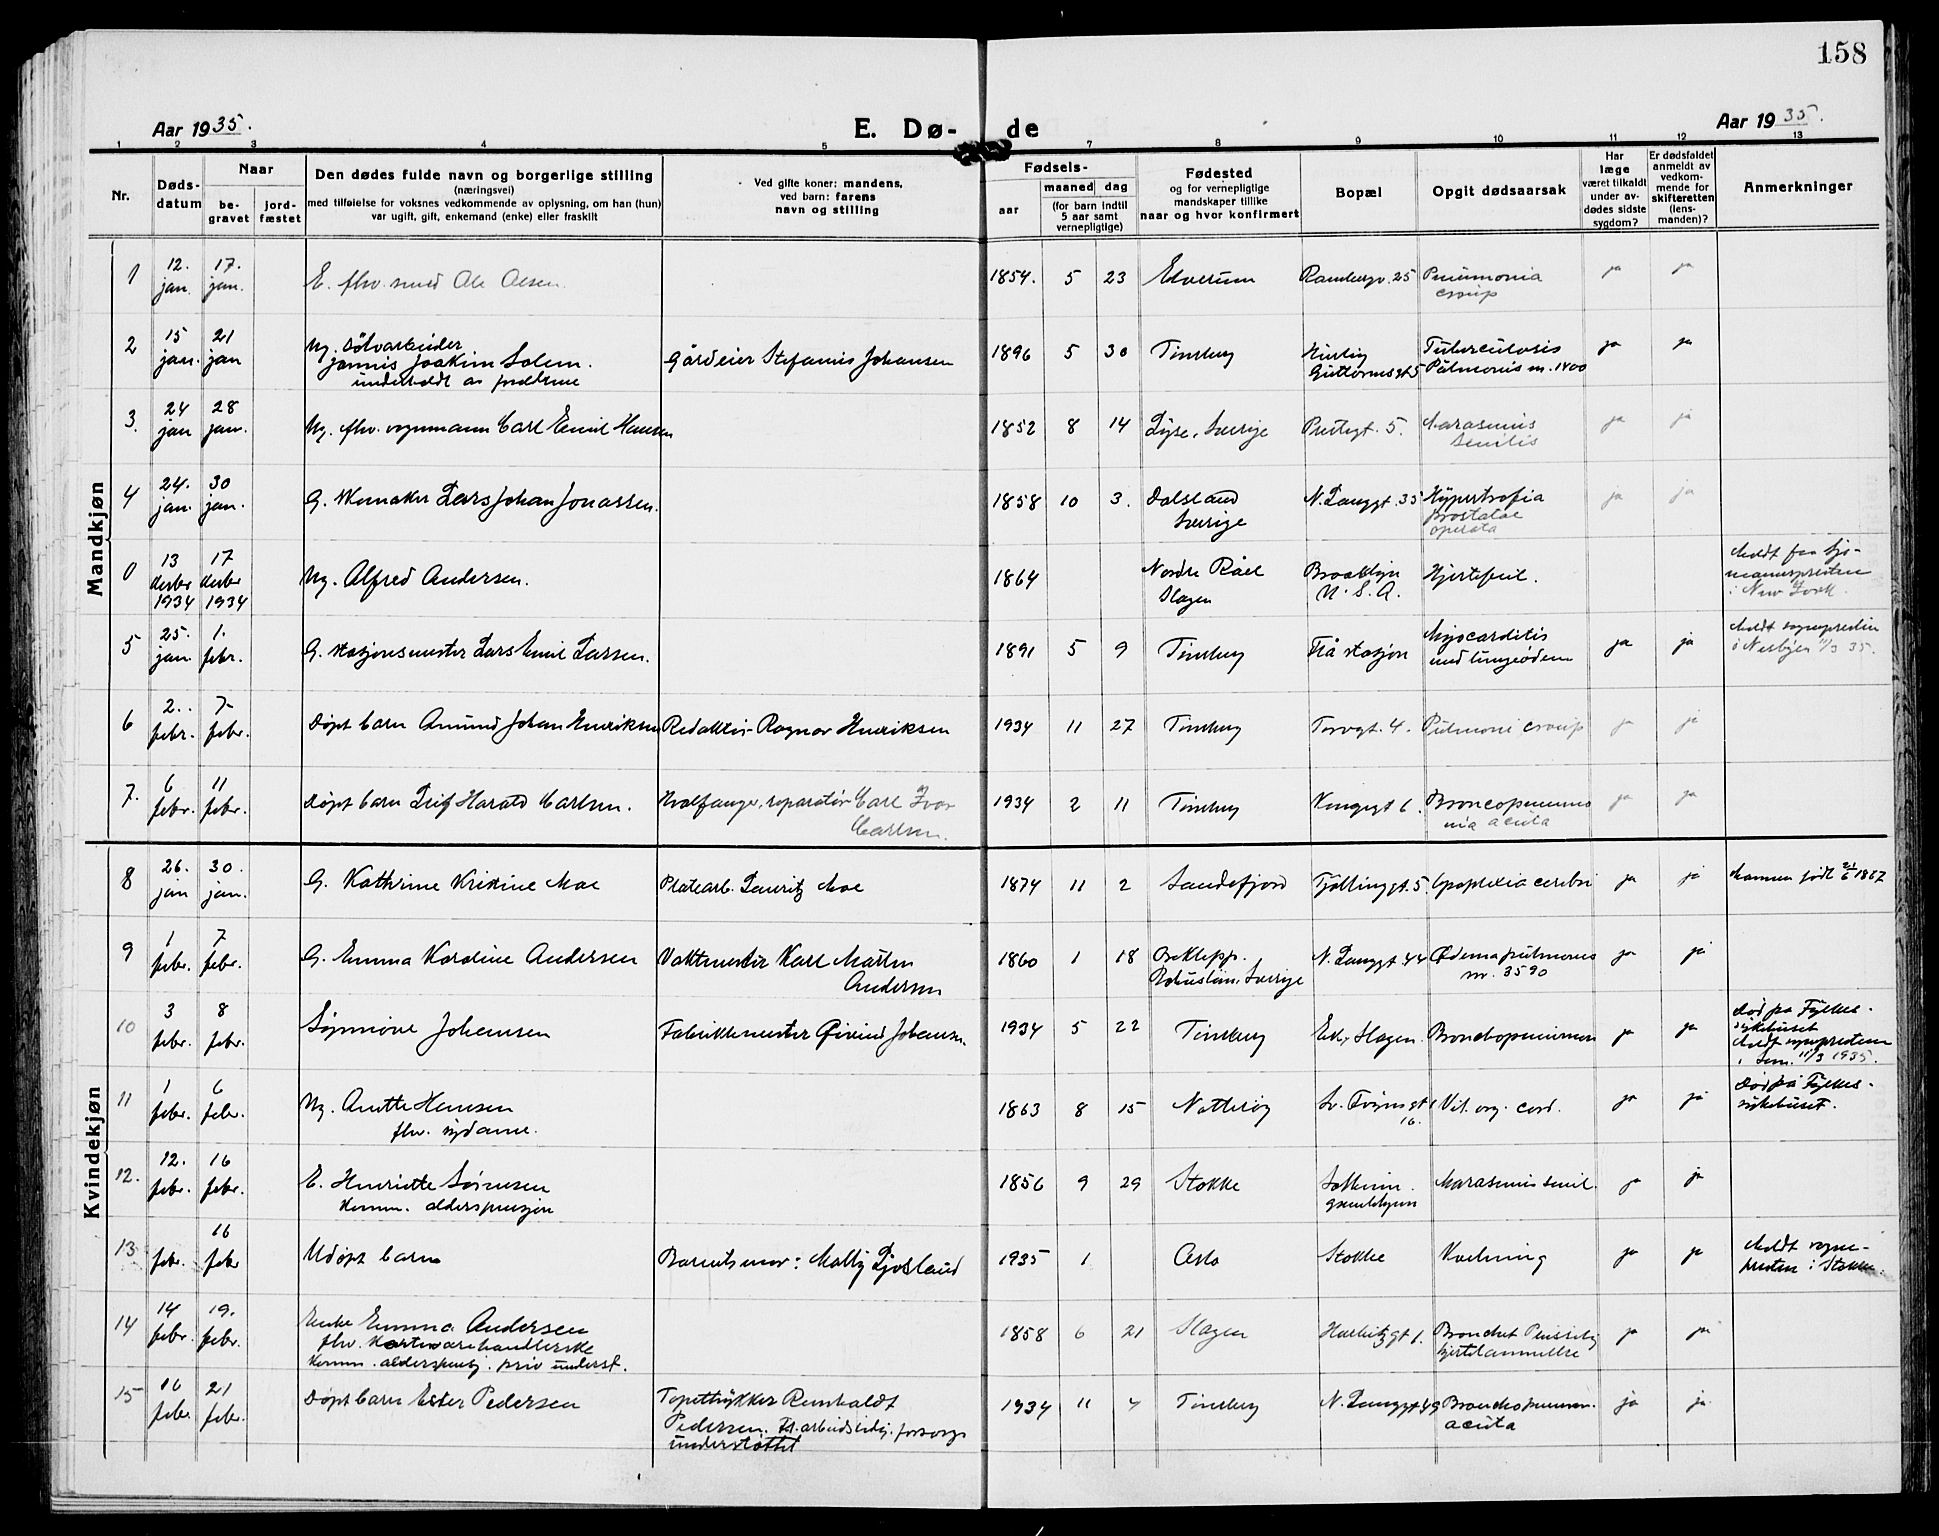 158
Aar 1935.
E. Døde
Aar 1935.
1 2 3 4 5 7 8 9 10 11 12 13
Nr.
Dødsdatum
Naar
begravet
jordfæstet
Den dødes fulde navn og borgerlige stilling
(næringsvei)
med tilføielse for voksnes vedkommende av oplysning, om han (hun)
var ugift, gift, enkemand (enke) eller fraskilt
Ved gifte koner: mandens,
ved barn: farens
navn og stilling
Fødsels-
aar
maaned dag
(for barn indtil
5 aar samt
vernepligtige)
Fødested
og for vernepligtige
mandskaper tillike
naar og hvor konfirmert
Bopæl
Opgit dødsaarsak
Har
læge
været tilkaldt
under av-
dødes sidste
sygdom?
Er dødsfaldet
anmeldt av
vedkom-
mende for
skifteretten
(lens-
manden)?
Anmerkninger
Mandkjøn
1 12. jan. 17. jan. E. fhv. smed Ole Olsen. 1854. 5 23 Elverum Rambergv. 25 Pneumonia croup ja ja
2 15 jan. 21 jan Ug. Sølvarbeider
Jonnis Joakim Solem.
underholdt av foreldrene Gårdeier Stefanus Johansen 1896 5 30 Tønsberg Guttormsgt 5 Tuberculosis Pulmonis m. 1400 ja ja
3. 24 jan 28 jan. Ug. fhv. vognmann Carl Emil Hansen 1852 8 14 Lyse, Sverige Prestegt. 5. Marasmus senilis ja ja
4 24. jan. 30 jan. G. Skomaker Lars Johan Jonassen. 1858 10 3. Dalsland Sverige N. Langgt. 35 Hypertrofia prostatae operata ja ja
0 13 desbr 1934 17 desbr 1934 Ug. Alfred Andersen. 1864 Nordre Råel Slagen Brooklyn U.S.A. Hjertefeil. Meldt fra Sjømannspresten i New York.
5 25. jan. 1. febr. G. stasjonsmester Lars Emil Larsen. 1891 5 9 Tønsberg Flå stasjon Myocarditis med lungeødem ja ja Meldt sognepresten i Nesbyen 11/3 35.
6 2. febr. 7- febr. Døpt barn Amund Johan Henriksen Redaktør Ragnar Henriksen 1934 11 27 Tønsberg Torvgt. 4. Pulmoni croup ja ja
7. 6 febr. 11 febr. Døpt barn Leif Harald Carlsen. Hvalfanger, reparatør Carl Ivar Carlsen. 1934 2 11 Tønsberg Kongegt 6. Broncopneumonia acuta ja ja
Kvindekjøn
8 26. jan 30. jan. G. Kathrine Kristine Moe Platearb. Lauritz Moe 1874 11 2 Sandefjord Tjøllinggt. 5 Apoplexia cerebri ja ja Mannen født 21/6 1867
9 1 febr. 7 febr. G. Emma Karoline Andersen Vaktmester Karl Martin Andersen 1860 1 18 Bohuslän, Sverige N. Langgt 44 Ødema pulmones m. 3590 ja ja
10 3 febr. 8 febr. Synnøve Johansen Fabrikkmester Øivind Johansen. 1934 5 22 Tønsberg Eik, Slagen. Bronchopneumon ja ja Død på Fylkes-
sykehuset
Meldt sognepresten
i Sem. 11/3 1935.
11 1 febr. 6 febr. Ug. Anette Hansen
fhv. sydame. 1863 8 15 Nøtterøy Sv. Foynsgt 16. Vit. org. cord. ja ja Død på Fylkes-
sykehuset.
12. 12. febr. 16 febr. E. Henriette Sørensen
Komm. alderspensjon 1856 9 29 Stokke Solheim gamlehjem Marasmus senil. ja ja
13 febr. 16 febr Udøpt barn Barnets mor: Molly Ljosland 1935 1 Oslo Stokke Kvelning ja ja Meldt sogne-
presten i Stokke.
14 14 febr. 19. febr. Enke Emma Andersen
fhv. Kortevarehandlerske
Komm. alderspensj. priv underst. 1858 6 21 Slagen Bronchit Pleuritis hjertelammelse ja ja
15 16 febr. 21 febr. Døpt barn Ester Pedersen Tapettrykker Reinholdt
Pedersen. arbeidsledig. forsorgs
understøttet 1934 11 4 Tønsberg N. Langgt 49 Bronchopneumon. acuta ja ja